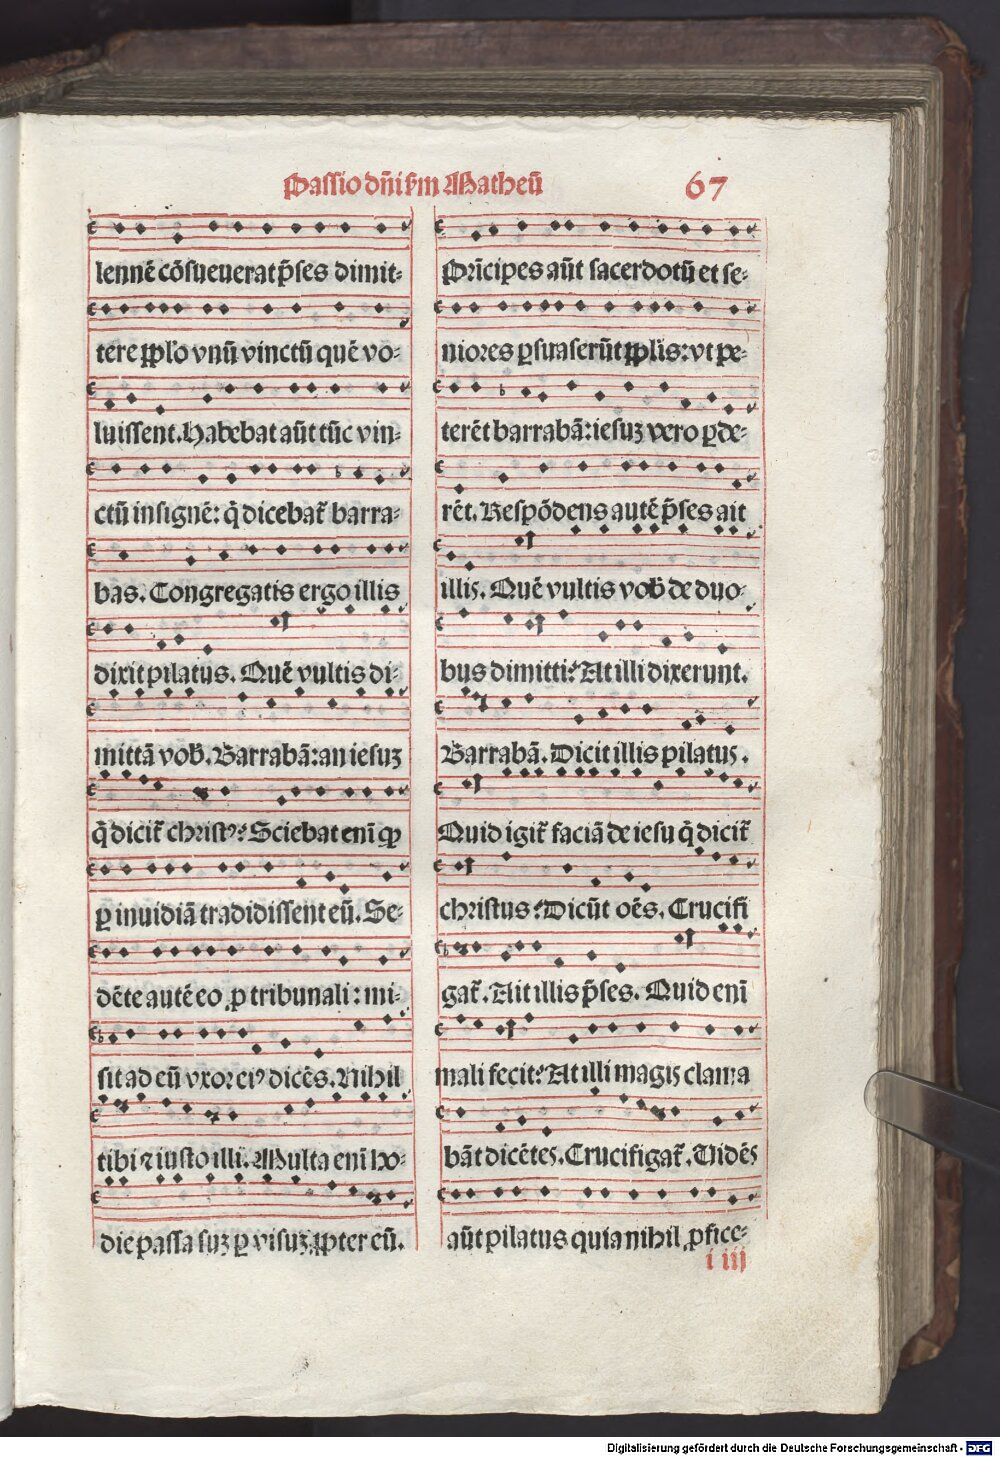 Passio dñi scḋm Matheũ 67
lennẽ cõsueuerat p̃ses dimit⸗
tere pp̃lo vnũ vinctũ quẽ vo⸗
luissent. Habebat aũt tũc vin⸗
ctũ insignẽ: q̃ dicebat̃ barra⸗
bas. Congregatis ergo illis
dixit pilatus. Quẽ vultis di⸗
mittã vob̃. Barrabã: an iesuꝫ
q̃ dicit̃ christꝰ? Sciebat enĩ ꝙ
ꝑ inuidiã tradidissent eũ. Se⸗
dẽte autẽ eo ꝓ tribunali: mi⸗
sit ad eũ vxor eiꝰ dicẽs. Nihil
tibi ⁊ iusto illi. Multa enĩ ho⸗
die passa suꝫ ꝑ visuꝫ ꝓpter eũ.
Prĩcipes aũt sacerdotũ et se⸗
niores ꝑsuaserũt pp̃lis: vt pe⸗
terẽt barrabã: iesuꝫ vero ꝑde⸗
rẽt. Respõdens autẽ p̃ses ait
illis. Quẽ vultis vob̃ de duo⸗
bus dimitti? At illi dixerunt.
Barrabã. Dicit illis pilatus.
Quid igit̃ faciã de iesu q̃ dicit̃
christus? Dicũt oẽs. Crucifi
gat̃. Ait illis p̃ses. Quid enĩ
mali fecit? At illi magis clama
bãt dicẽtes. Crucifigat̃. Vidẽs
aũt pilatus quia nihil ꝓfice⸗
i iij
Digitalisierung gefördert durch die Deutsche Forschungsgemeinschaft - DFG